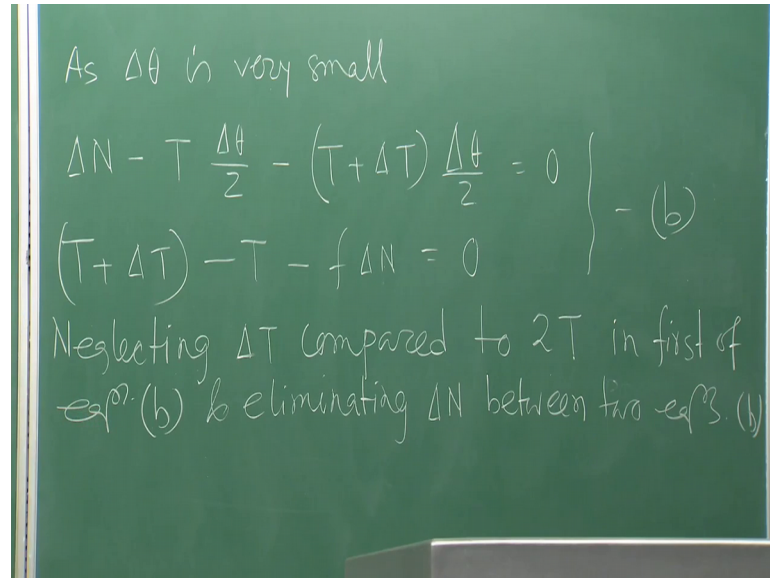 As Δθ is very small
ΔN - T Δθ/2 - (T + ΔT) Δθ/2 = 0
(T + ΔT) - T - f ΔN = 0 } - (b)
Neglecting ΔT compared to 2T in first of
eqn. (b) & eliminating ΔN between two eqns. (b)